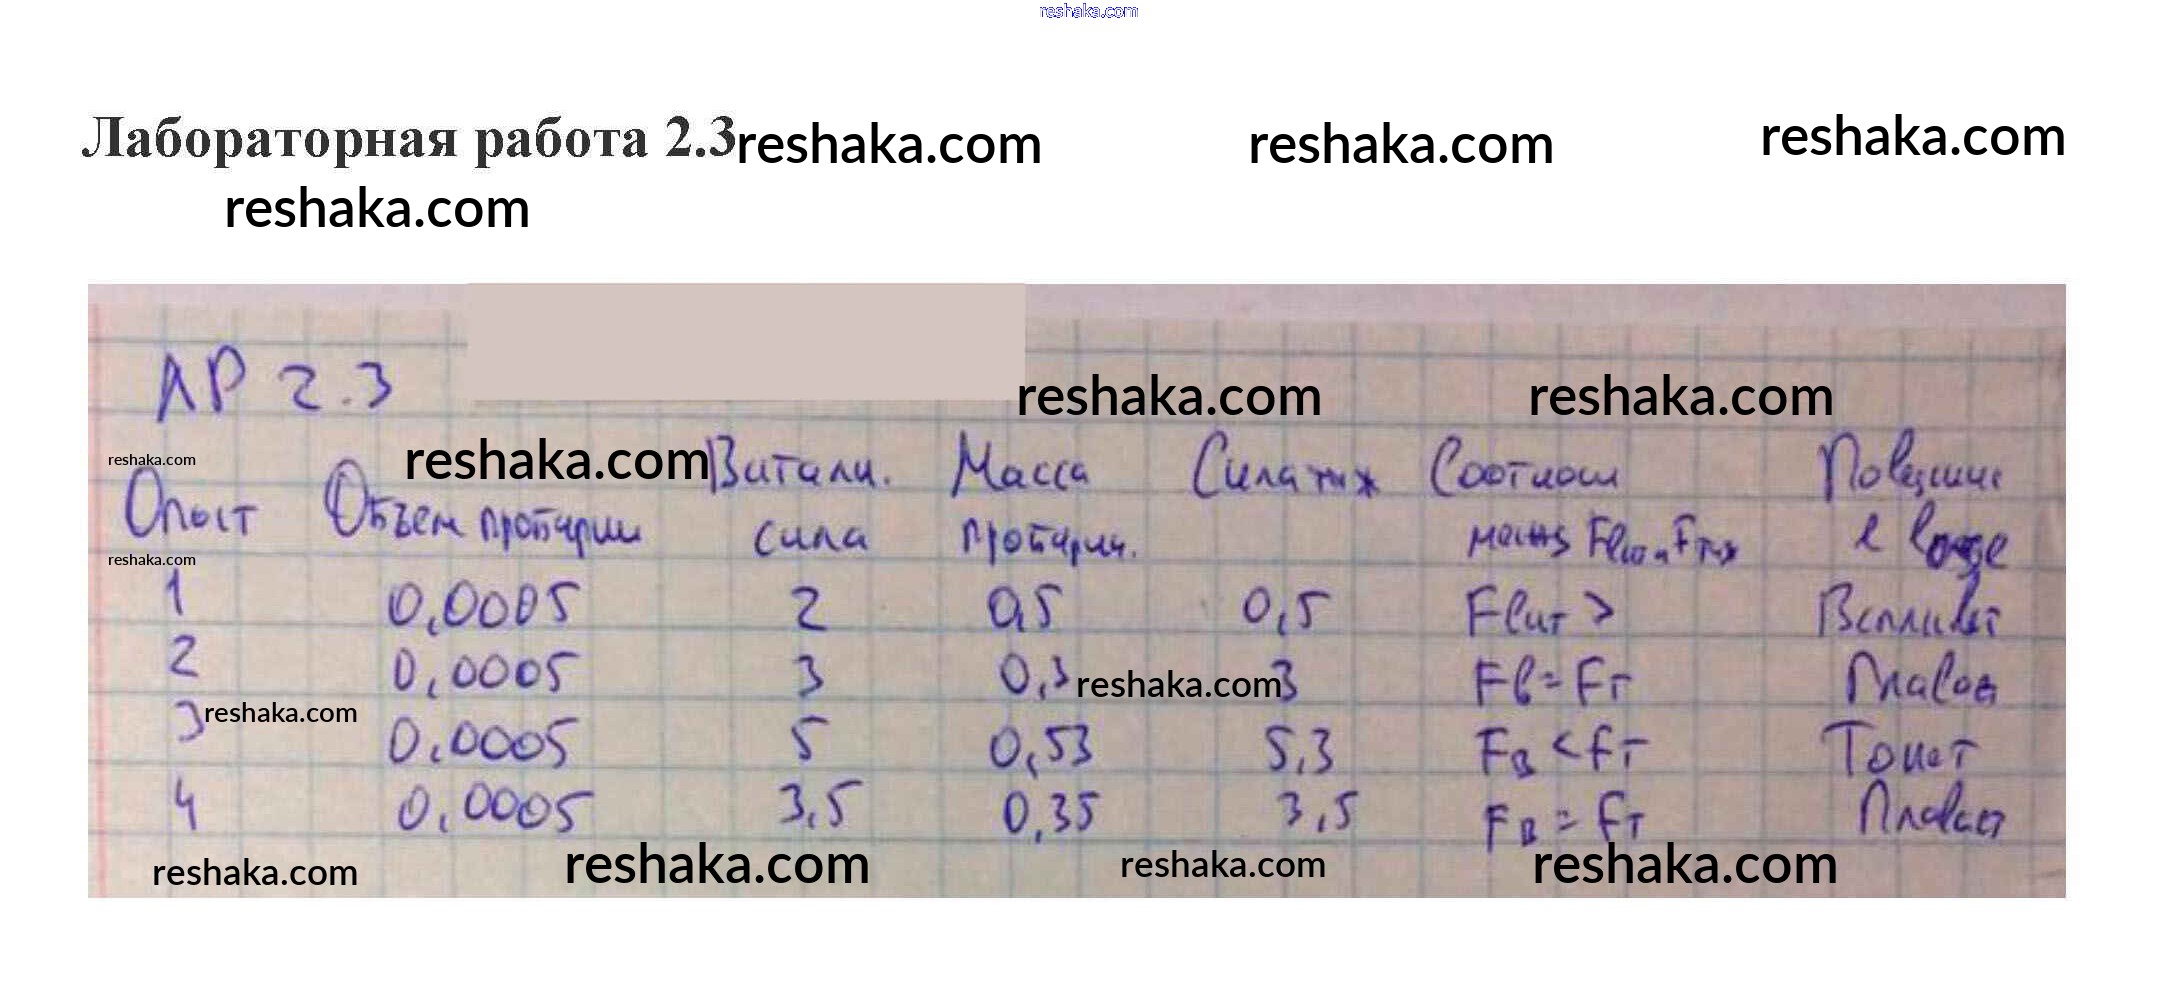 reshaka.com
Лабораторная работа 2.3 reshaka.com reshaka.com reshaka.com
reshaka.com
ЛР 2.3 reshaka.com reshaka.com
reshaka.com reshaka.com Масса Сила тяж Соотнош
Опыт Объем сила между Fвыт и Fтяж в воде
reshaka.com
1 0,0005 2 0,5 0,5 Fвыт >
2 0,0005 3 0,3 reshaka.com 3 Fв = Fт
3 reshaka.com 0,0005 5 0,53 5,3 Fв < Fт Тонет
4 0,0005 3,5 0,35 3,5 Fв = Fт Плавает
reshaka.com reshaka.com reshaka.com reshaka.com